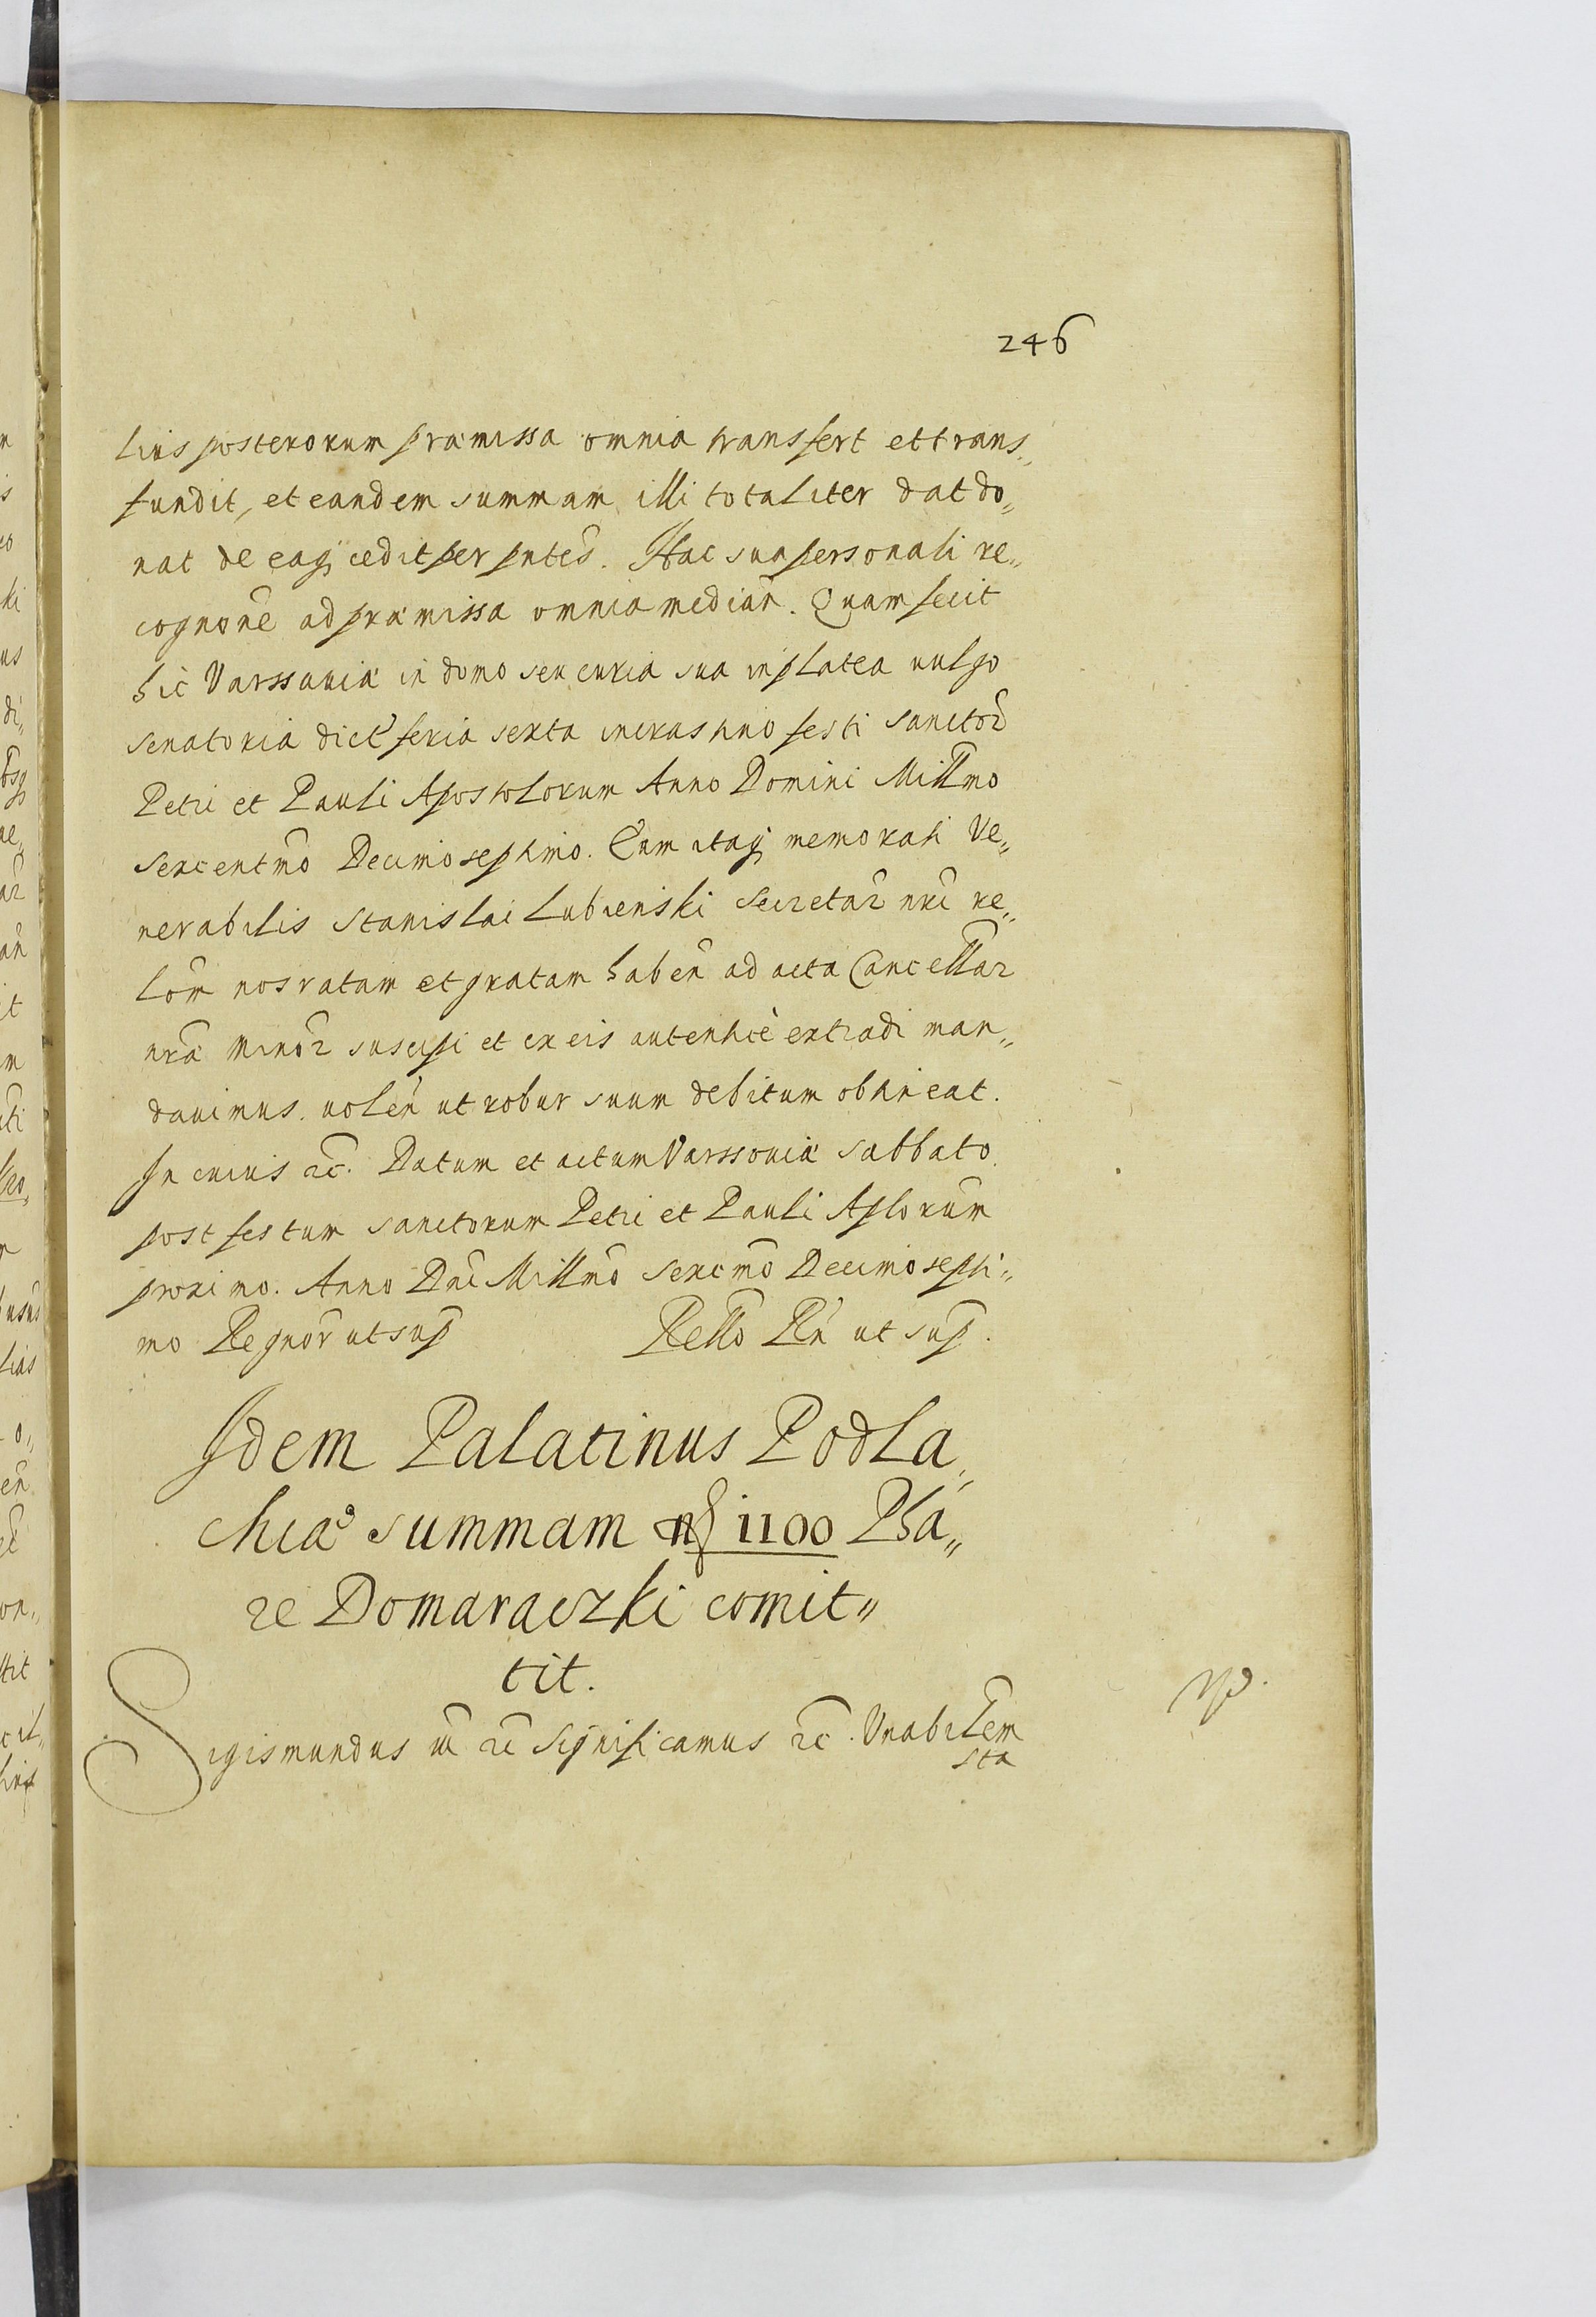 246
lius posterorum præmissa omnia transfert et trans„
fundit, et eandem summam illi totaliter dat do„
nat de eaq cedit per pntes. Hac sua personali re„
cognone ad præmissa omnia median. Quam fecit
hic Varssaviæ in domo seu curia sua in platea vulgo
senatoria dict feria sexta in crastino festi Sanctor
Petri et Pauli Apostolorum Anno Domini Millmo
sexcentmo Decimoseptimo. Eam itaq memorati Ve„
nerabilis Stanislai Lubienski Secretar nri re„
lom nos ratam et gratam haben ad acta Cancellar
nræ minor suscipi et ex eis autentice extradi man„
davimus. volen ut robur suum debitum obtineat.
In cuius &c. Datum et actum Varssoviæ Sabbato
post festum sanctorum Petri et Pauli Aplorum
proximo. Anno Dni Millmo Sexcmo Decimosepti„
mo Regnor ut sup Rello Rn ut sup.
Idem Palatinus Podla„
chiæ summam fl 1100 Pha„
re Domaraczki comit„
tit.
Sigismundus III &c Significamus &c. Vnabilem
Sta